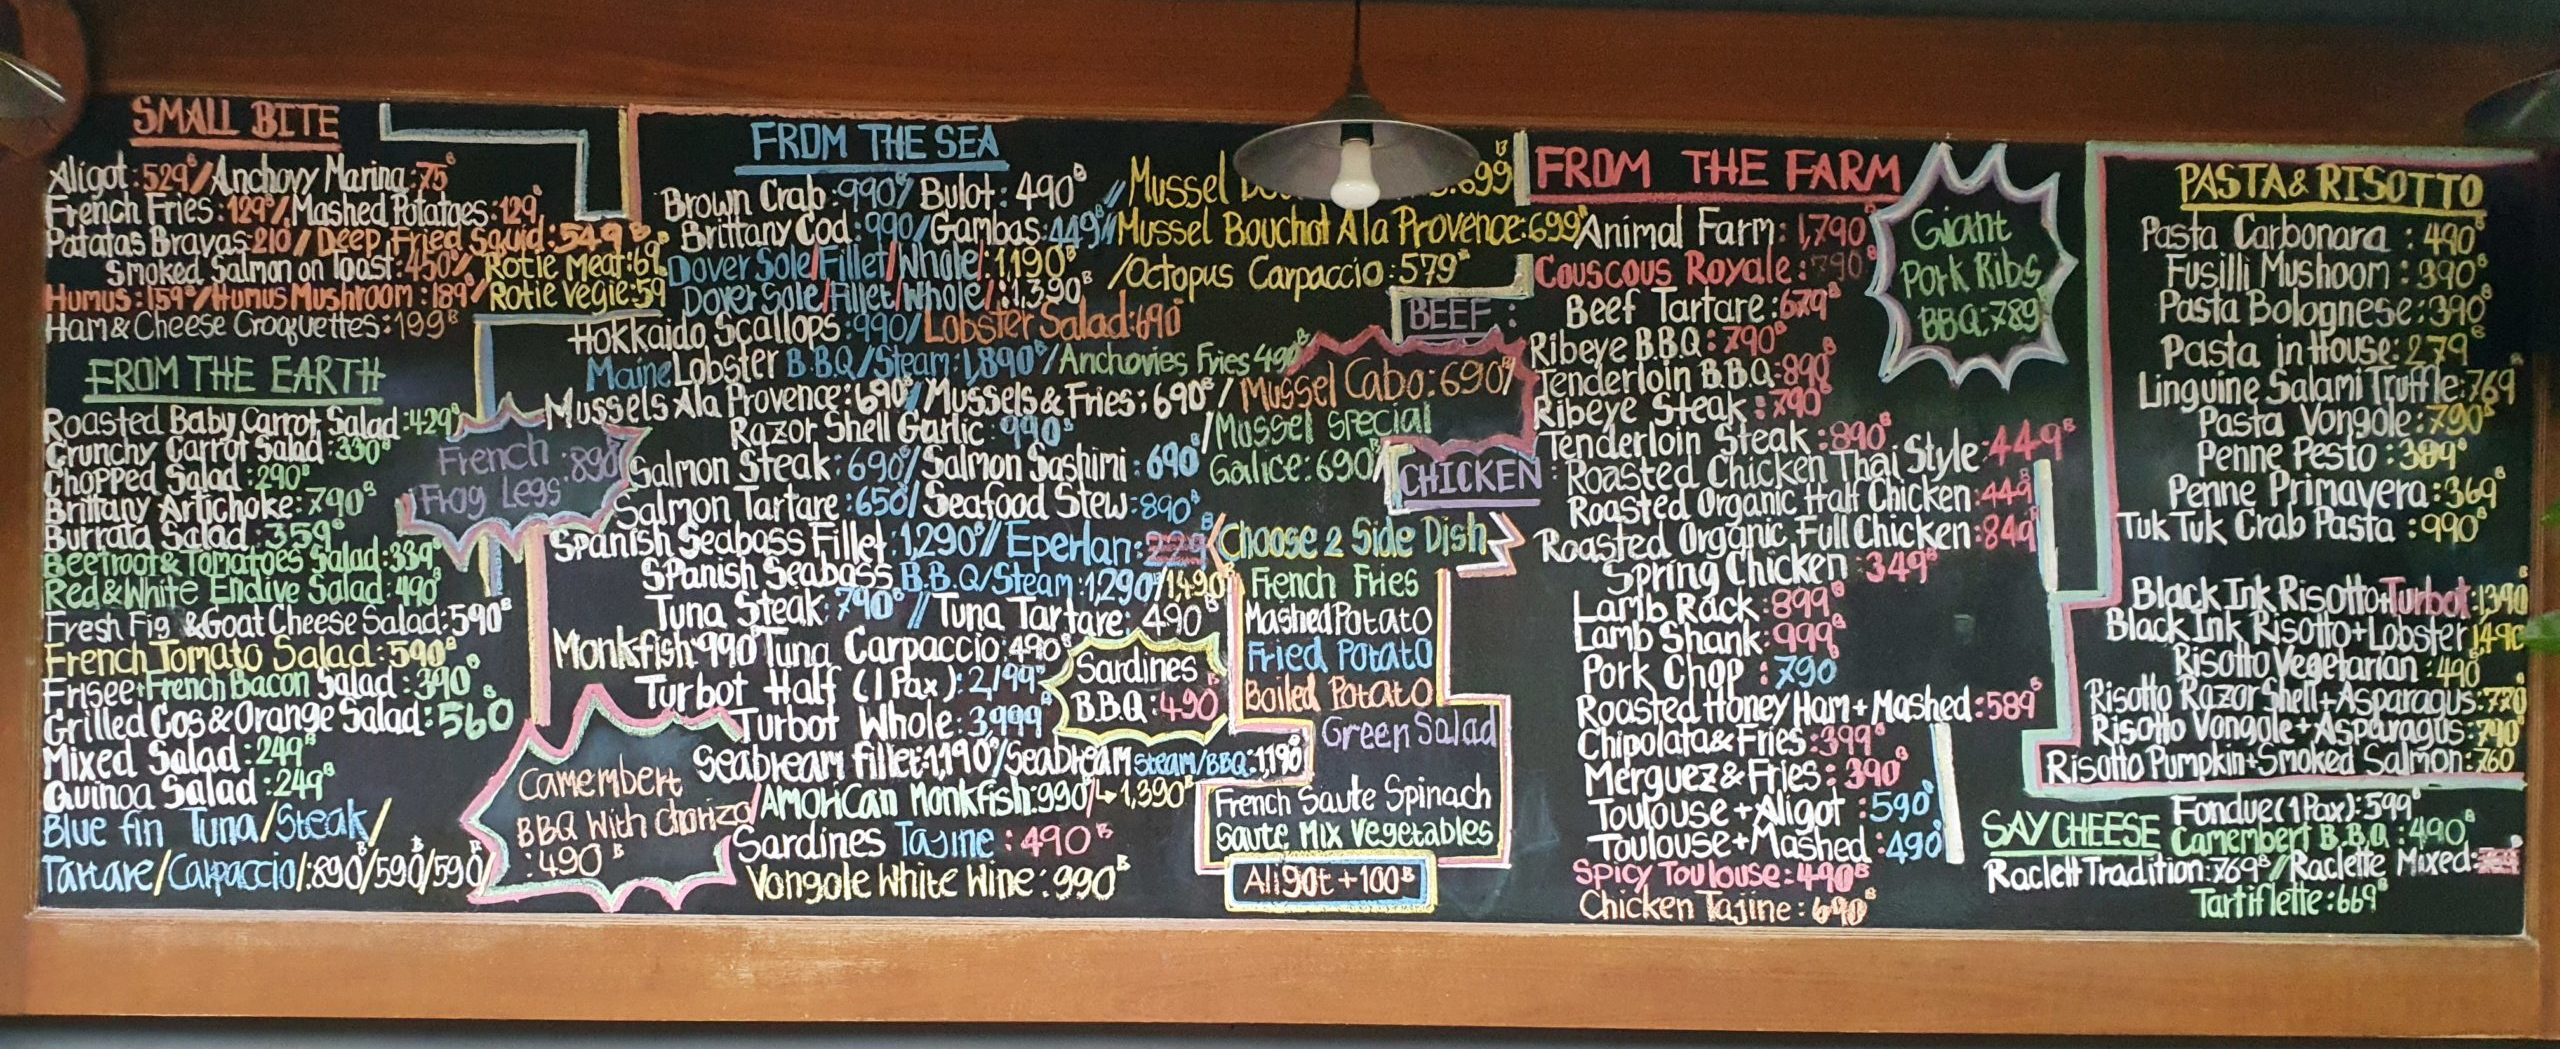 SMALL BITE
Aligot:529฿/Anchovy Marina:75฿
French Fries:129฿/Mashed Potatoes:129
Patatas Bravas 210/Deep Fried Squid:549฿
Smoked Salmon on Toast:450฿/Rotie Meat:69
Humus:159฿/Humus Mushroom:189฿/Rotie Vegie:59
Ham & Cheese Croquettes:199฿
FROM THE EARTH
Roasted Baby Carrot Salad:429฿
Crunchy Carrot Salad:330฿
Chopped Salad:290฿
Brittany Artichoke:790฿
Burrata Salad:359฿
Beetroot & Tomatoes Salad:339฿
Red & White Endive Salad:490฿
Fresh Fig & Goat Cheese Salad:590฿
French Tomato Salad:590฿
Frisee+French Bacon Salad:390฿
Grilled Cos & Orange Salad:560฿
Mixed Salad:249฿
Quinoa Salad:249฿
Blue fin Tuna/Steak/
Tartare/Carpaccio/:890฿/590฿/590฿
French :890฿
Frog Legs
Camembert
BBQ With Chorizo
:490฿
FROM THE SEA
Brown Crab:990฿/Bulot:490฿//Mussel 699฿
Brittany Cod:990/Gambas:449฿//Mussel Bouchot Ala Provence:699฿
Dover Sole/Fillet/Whole/:1,190฿/Octopus Carpaccio:579฿
Dover Sole/Fillet/Whole/:1,390฿
Hokkaido Scallops:990/Lobster Salad:690
Maine Lobster B.B.Q/Steam:1,890฿/Anchovies Fries 490฿
Mussels Ala Provence:690฿/Mussels & Fries:690฿/Mussel Cabo:690/
Razor Shell Garlic:990฿/Mossel Special
Galice:690
Salmon Steak:690฿/Salmon Sashimi:690฿
Salmon Tartare:650/Seafood Stew:890฿
Spanish Seabass Fillet:1,290฿//Eperlan:
Spanish Seabass B.B.Q/Steam:1,290/1,490฿
Tuna Steak:790฿//Tuna Tartare:490฿
Monkfish:990 Tuna Carpaccio:490฿
Turbot Half (1 Pax):2,199฿
Turbot Whole:3,999฿
Seabream Fillet:1,190฿/Seabream Steam/BBQ:1,190฿
/American Monkfish:990/↳1,390฿
Sardines Tajine:490฿
Vongole White Wine:990฿
Sardines
B.B.Q:490฿
Choose 2 Side Dish
French Fries
Mashed Potato
Fried Potato
Boiled Potato
Green Salad
French Saute Spinach
Saute Mix Vegetables
Aligot +100฿
FROM THE FARM
Animal Farm:1,790฿
Couscous Royale:790฿
BEEF:
Beef Tartare:679฿
Ribeye B.B.Q:790฿
Tenderloin B.B.Q:890฿
Ribeye Steak:790฿
Tenderloin Steak:890฿
CHICKEN:
Roasted Chicken Thai Style:449฿
Roasted Organic Half Chicken:449฿
Roasted Organic Full Chicken:849฿
Spring Chicken:349฿
Lamb Rack:899฿
Lamb Shank:999฿
Pork Chop:790
Roasted Honey Ham+Mashed:589฿
Chipolata & Fries:399฿
Merguez & Fries:390฿
Toulouse+Aligot:590฿
Toulouse+Mashed:490฿
Spicy Toulouse:490฿
Chicken Tajine:690฿
Giant
Pork Ribs
BBQ:789฿
PASTA & RISOTTO
Pasta Carbonara:490฿
Fusilli Mushoom:390฿
Pasta Bolognese:390฿
Pasta in House:279฿
Linguine Salami Truffle:769฿
Pasta Vongole:790฿
Penne Pesto:389฿
Penne Primavera:369฿
Tuk Tuk Crab Pasta:990฿
Black Ink Risotto+Turbot:1390฿
Black Ink Risotto+Lobster 1490
Risotto Vegetarian:490฿
Risotto Razor Shell+Asparagus:770
Risotto Vongole+Asparagus:790฿
Risotto Pumpkin+Smoked Salmon:760
SAY CHEESE
Fondue(1Pax):599฿
Camembert B.B.Q:490฿
Raclett Tradition:769฿//Raclette Mixed:
Tartiflette:669฿